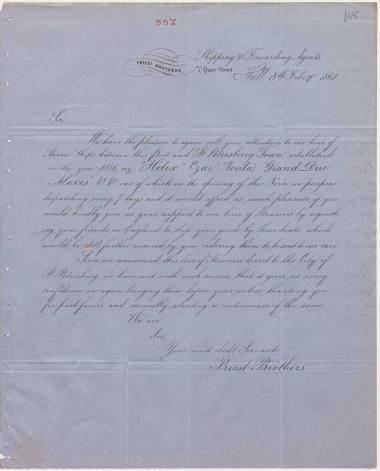 507
PRIEST BROTHERS,
Shipping & Forwarding Agents
7, Quay Street,
Hull, 8th Feby 1861
Sir
We have the pleasure to again call your attention to our line of
Steam Ships between this Port and St Petersburg Town, established
in the year 1856, "Helix" "Czar" "Grand Duc
Alexis" &c &c one of which on the opening of the Neva we purpose
dispatching every 7 days and it would afford us much pleasure if you
would kindly give us your support to our line of Steamers by
your friends in England to ship your goods by these boats which
would be still further ensured by your ordering them to be sent to our care
Since we commenced this line of Steamers direct to the City of
St Petersburg we have met with such success that it gives us every
confidence in again bringing them before your notice, thanking you
for past favors and earnestly soliciting a continuance of the same
We are
Sir,
Your most obedt Servants
Priest Brothers